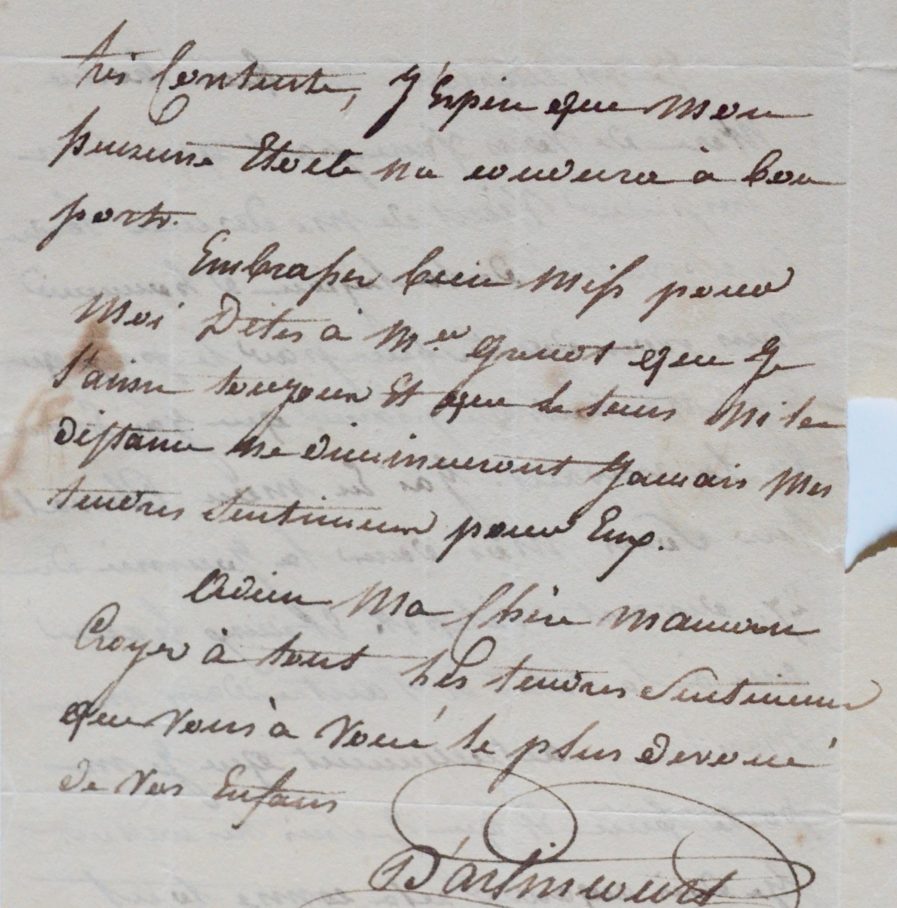 très Contente, J'Espere que Mon
heureuse Etoile me conduira à bon
port.
Embrasser bien Miss pour
Moi Dites à Mr. que Je
l'aime toujours Et que le tems Ni la
distance ne diminueront Jamais Mes
tendres Sentimens pour Eux.
Adieu Ma Chère Maman
Croyez à tout les tendres Sentimens
que Vous à Voué le plus devoué
de Vos Enfans
D'arlincourt